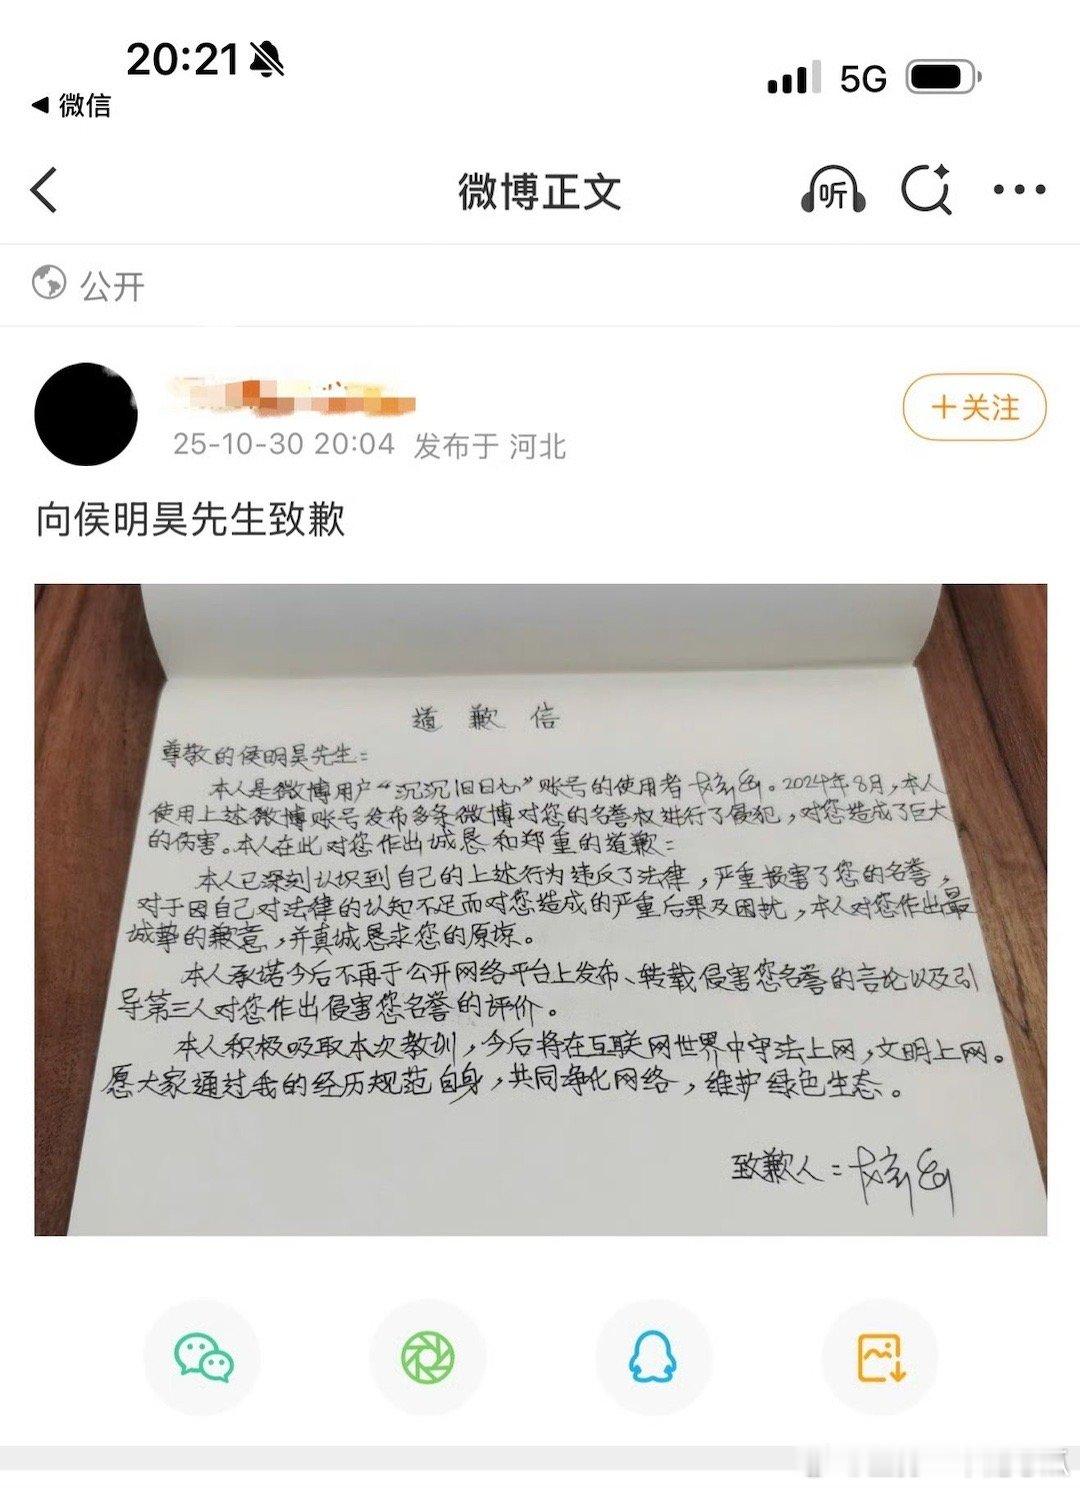 20:21
5G
微信
微博正文
听
公开
25-10-30 20:04 发布于 河北
+关注
向侯明昊先生致歉
道歉信
尊敬的侯明昊先生:
本人是微博用户“沉沉旧日心”账号的使用者。2024年8月,本人
使用上述微博账号发布多条微博对您的名誉权进行了侵犯,对您造成了巨大
的伤害。本人在此对您作出诚恳和郑重的道歉:
本人已深刻认识到自己的上述行为违反了法律,严重损害了您的名誉,
对于因自己对法律的认知不足而对您造成的严重后果及困扰,本人对您作出最
诚挚的歉意,并真诚恳求您的原谅。
本人承诺今后不再于公开网络平台上发布、转载侵害您名誉的言论以及引
导第三人对您作出侵害您名誉的评价。
本人积极吸取本次教训,今后将在互联网世界中守法上网,文明上网。
愿大家通过我的经历规范自身,共同净化网络,维护绿色生态。
致歉人: